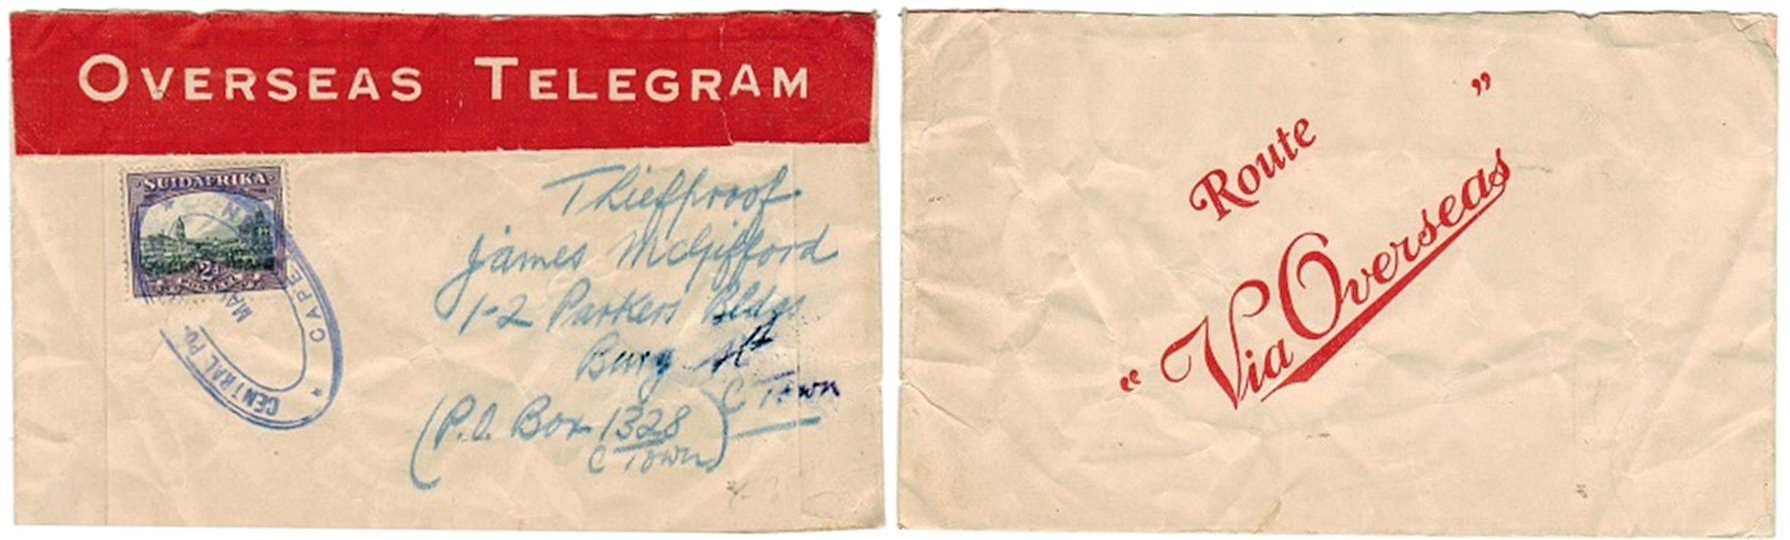 OVERSEAS TELEGRAM
SUIDAFRIKA
2
CENTRAL
CAPE
MAY
Thiefproof
James McGifford
1-2 Parkers Bldgs
Burg St
C Town
(P.O. Box 1328
C Town)
Route
"Via Overseas"